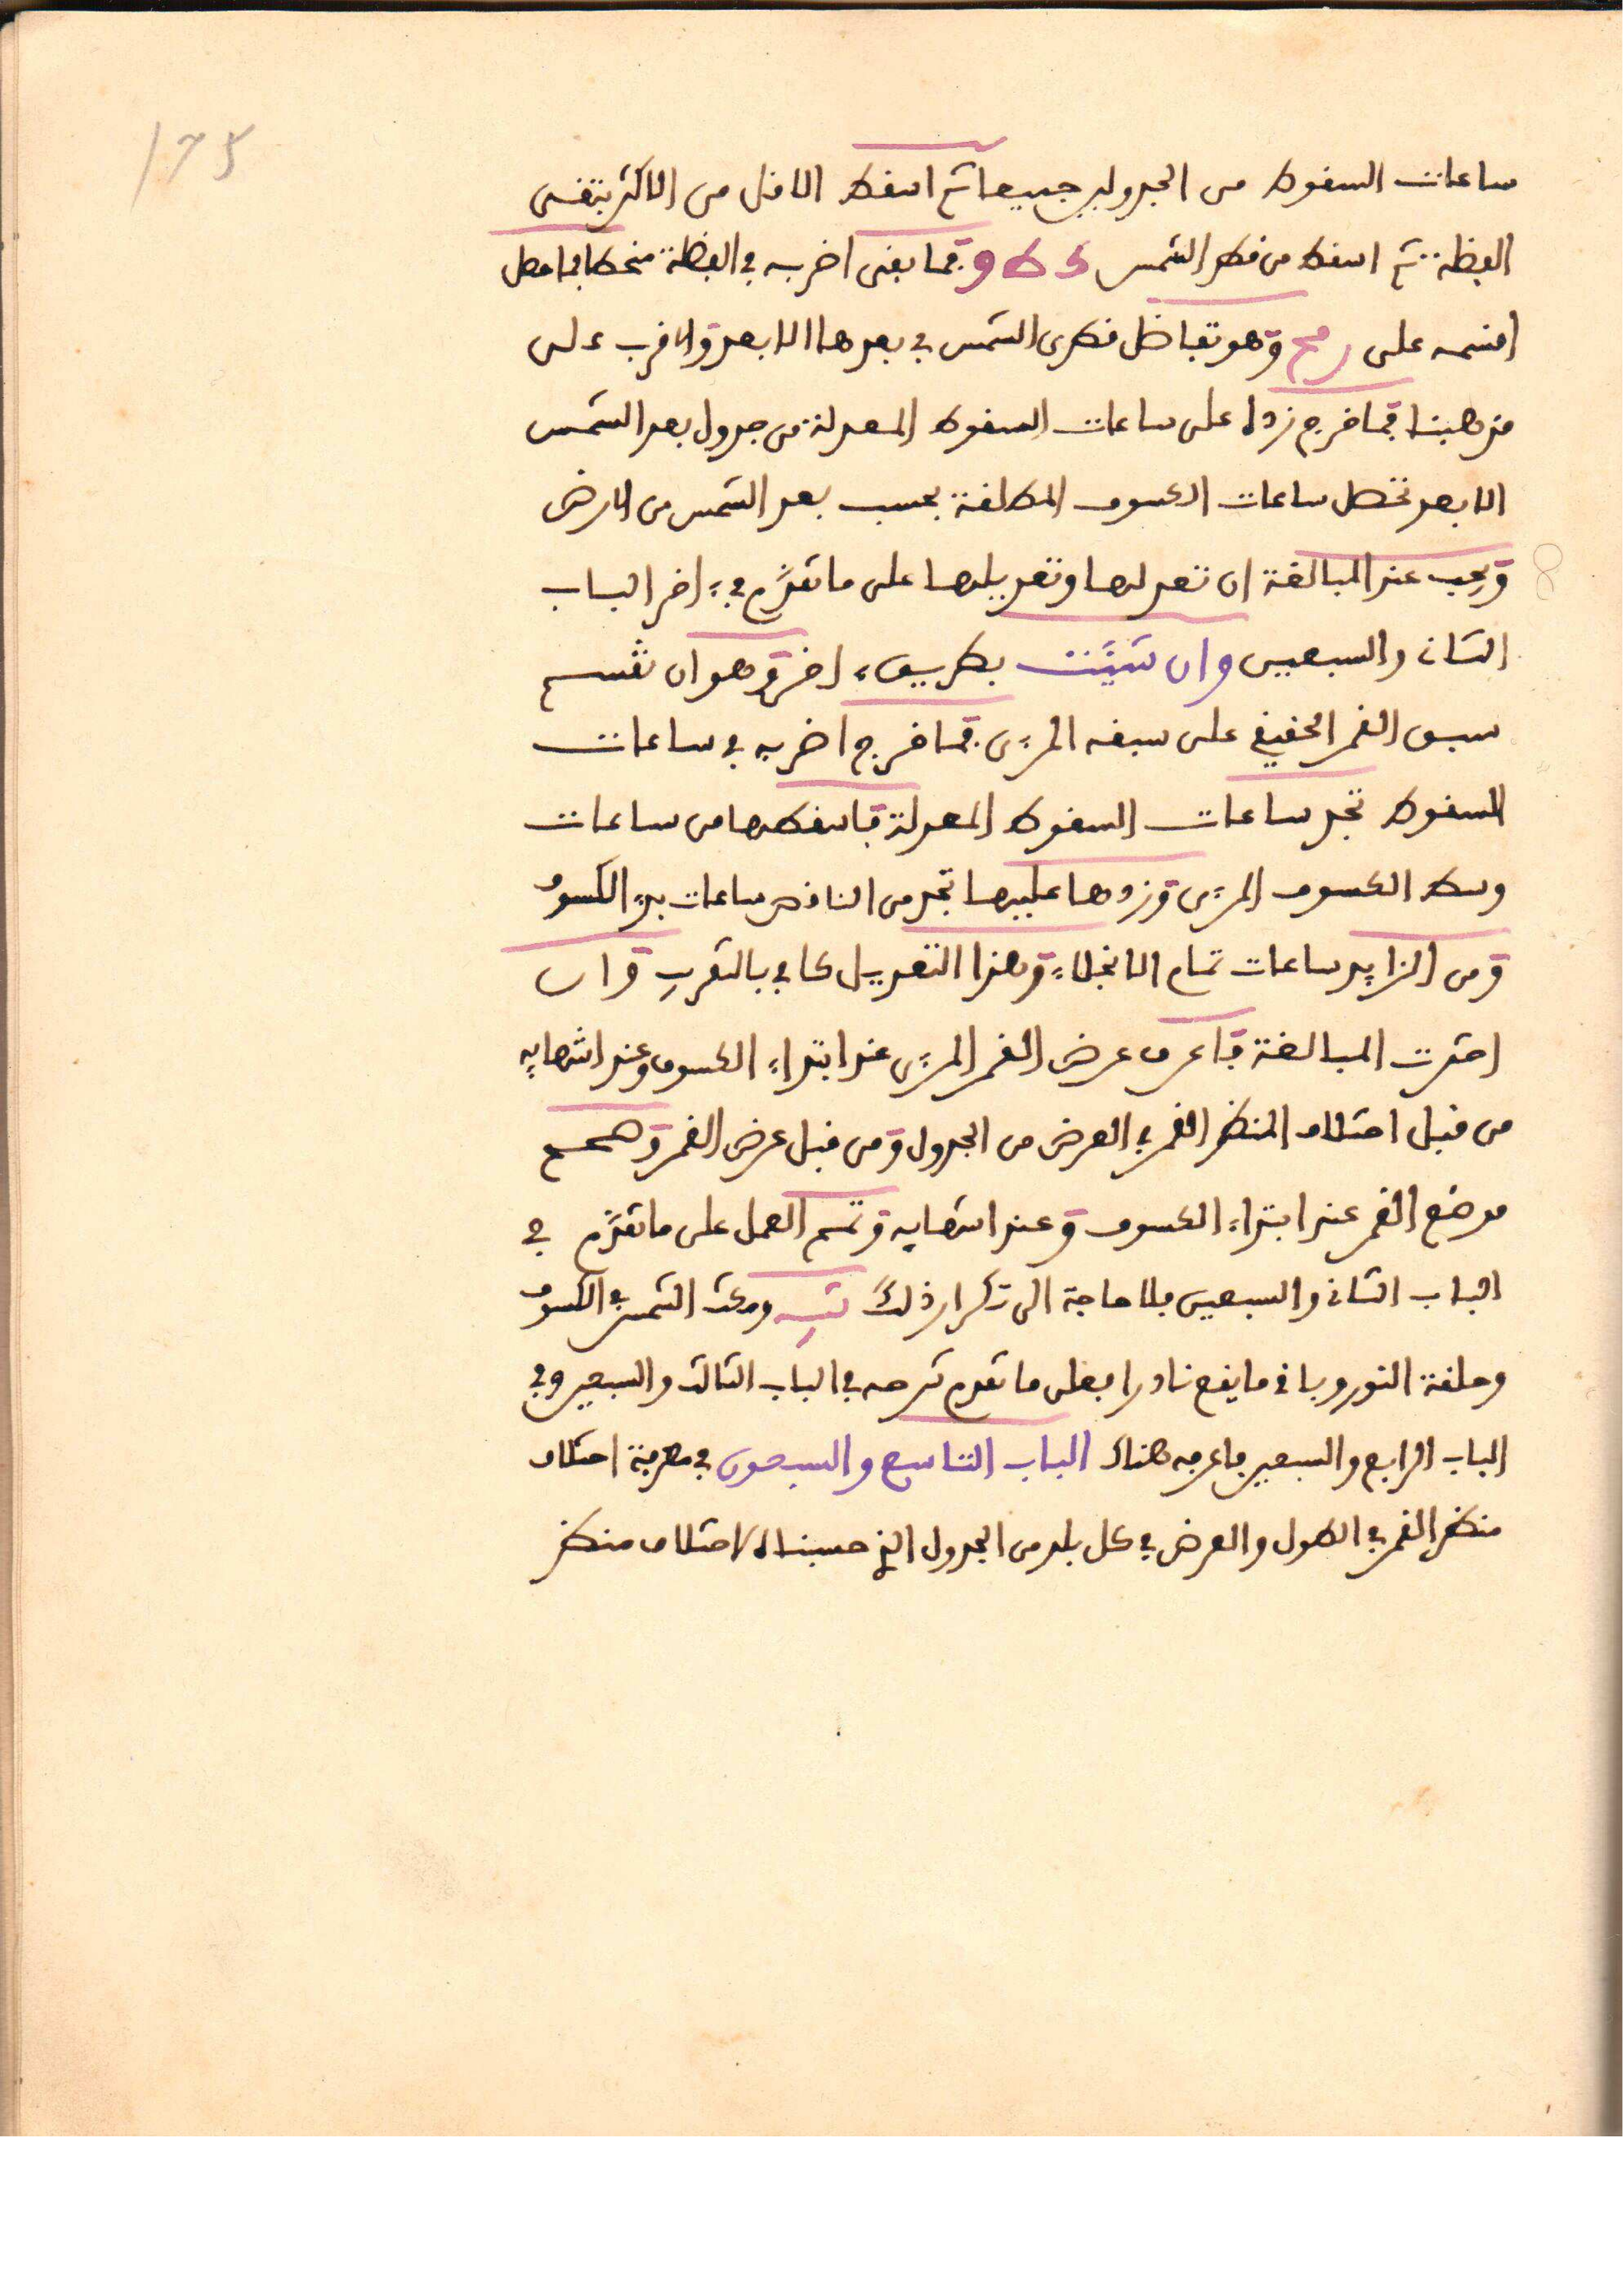 175
ساعات السقوط من الجدولين جميعا ثم اسقط الاقل من الاكثر تبقى
الفضلة ثم اسقط من قطر الشمس فما بقى اضربه في الفضلة منحطا فما حصل
اقسمه على وهو تفاضل قطرى الشمس في بعدها الابعد والاقرب على
مذهبنا فما خرج زده على ساعات السقوط المعدلة من جدول بعد الشمس
الابعد تحصل ساعات الكسوف المطلقة بحسب بعد الشمس من الارض
ويجب عند المبالغة ان تعدلها وتعديلها على ما تقدم في اخر الباب
الثاني والسبعين وان شئت بطريق اخر وهو ان تقسم
سبق القمر الحقيقي على سبقه المرءى فما خرج اضربه في ساعات
السقوط تجد ساعات السقوط المعدلة فاسقطها من ساعات
وسط الكسوف المرءى وزدها عليها تجد من الناقص ساعات بدء الكسوف
ومن الزايد ساعات تمام الانجلاء وهذا التعديل كافي بالتقريب وان
اخترت المبالغة فاعرف عرض القمر المرءى عند ابتداء الكسوف وعند انتهايه
من قبل اختلاف المنظر القمر في العرض من الجدول ومن قبل عرض القمر وصحح
موضع القمر عند ابتداء الكسوف وعند انتهايه وتمم العمل على ما تقدم في
الباب الثاني والسبعين بلا حاجة الى تكرار ذلك ومكث الشمس في الكسوف
وحلقة النور وباقى ما يقع نادرا فعلى ما تقدم شرحه في الباب الثالث والسبعين وفي
الباب الرابع والسبعين فاعرفه هناك الباب التاسع والسبعون في معرفة اختلاف
منظر القمر في الطول والعرض في كل بلد من الجدول الذي حسبناه لاختلاف منظر